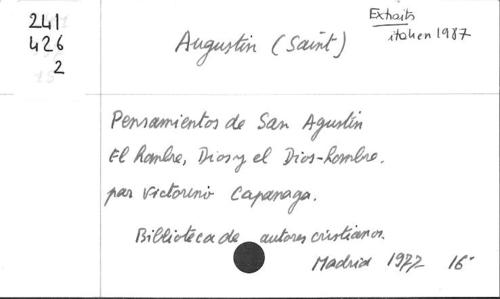 241
426
2
Augustin (Saint)
Extraits
italien 1987
Pensamientos de San Agustin
El hombre, Dios y el Dios-hombre.
par Victorino Capanaga.
Biblioteca de autores cristianos.
Madrid 1977 16°